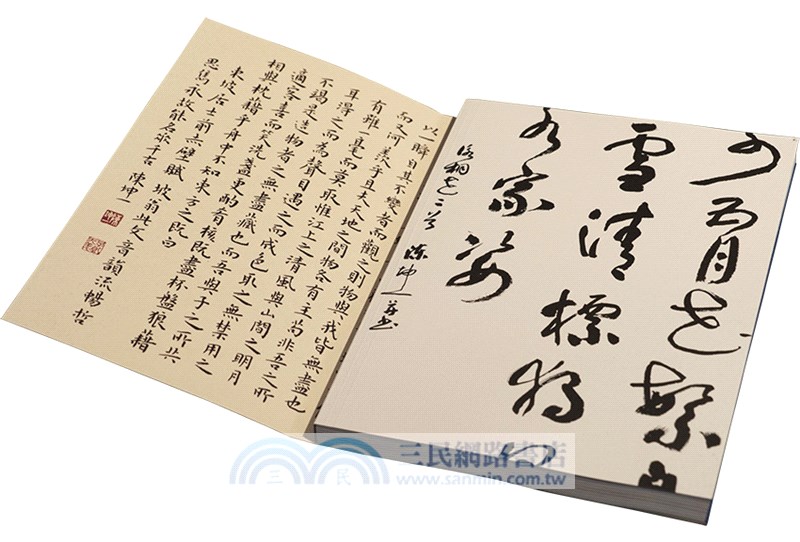 以一瞬自其不變者而觀之則物與我皆無盡也
而又何羨乎且夫天地之間物各有主苟非吾之所
有雖一毫而莫取惟江上之清風與山間之明月
耳得之而為聲目遇之而成色取之無禁用之
不竭是造物者之無盡藏也而吾與子之所共
適客喜而笑洗盞更酌肴核既盡杯盤狼藉
相與枕藉乎舟中不知東方之既白
東坡居士前赤壁賦坡翁此文音韻流暢哲
思雋永故能名垂千古 陳坤一
五月花繁白
雪清標獨
家姿
詠桐花二首 陳坤一并書
三民網路書店
www.sanmin.com.tw
三 民